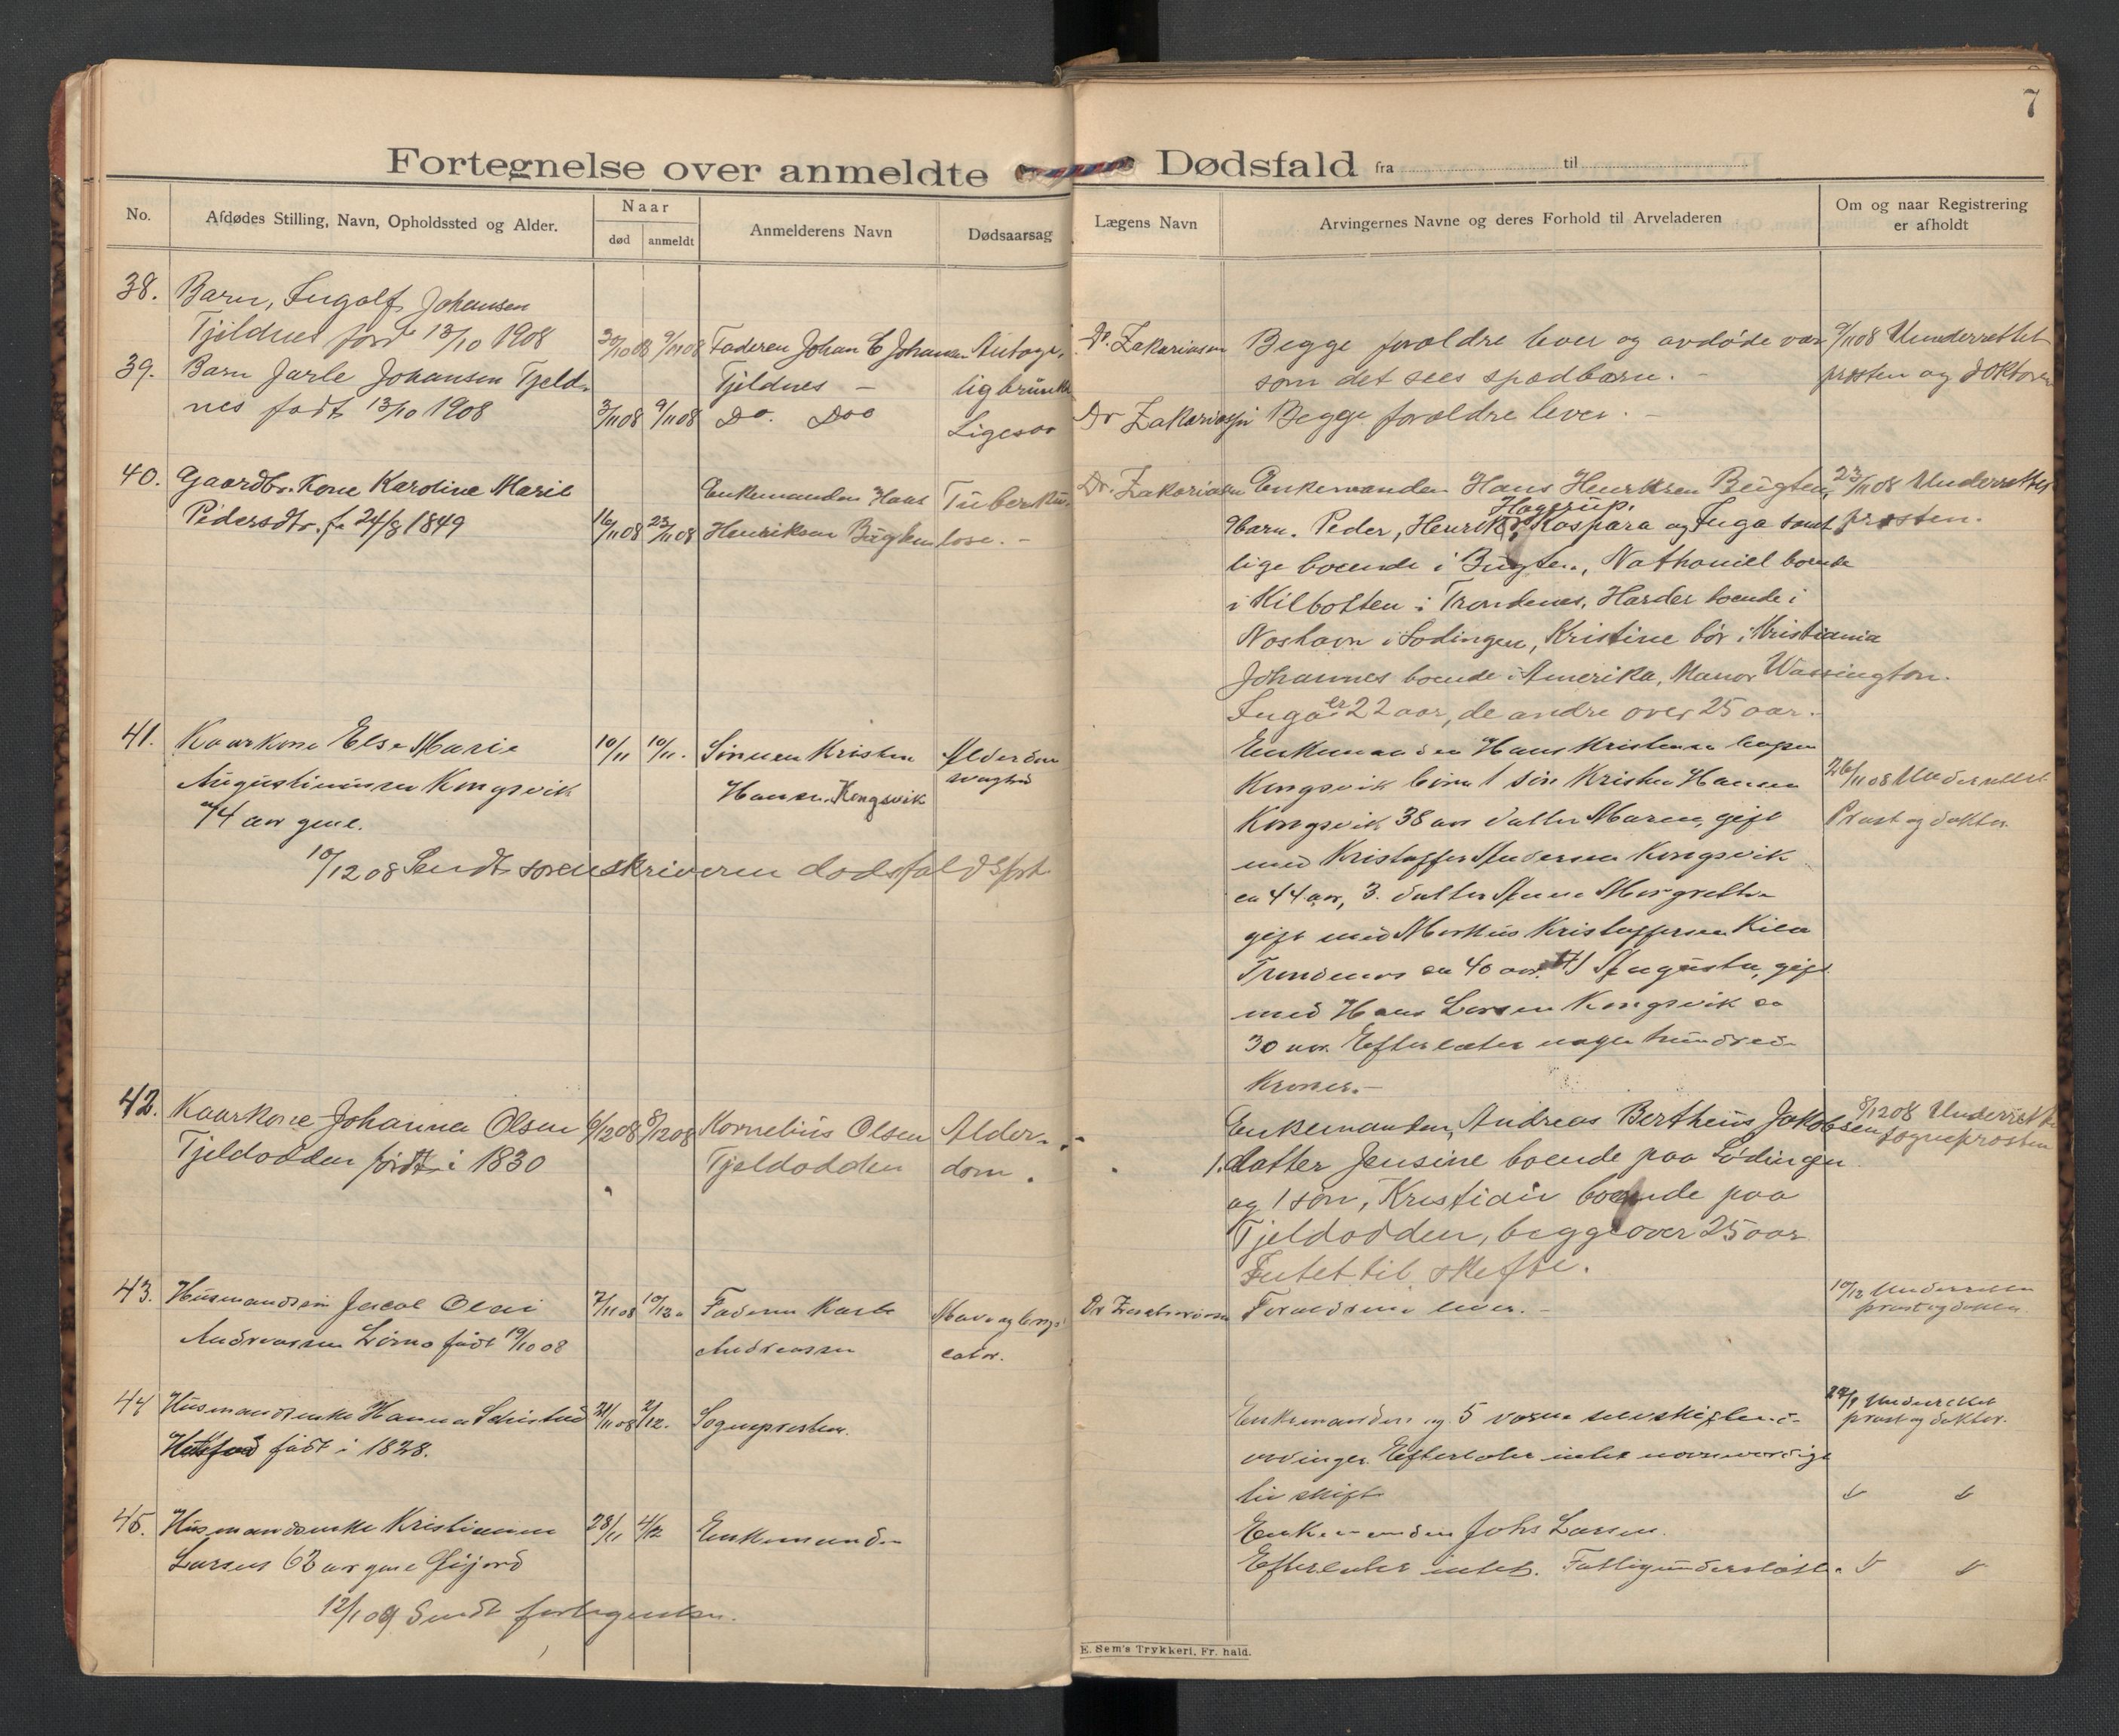 7
Fortegnelse over anmeldte Dødsfald fra til
No.
Afdødes Stilling, Navn, Opholdssted og Alder.
Naar
død anmeldt
Anmelderens Navn
Dødsaarsag
Lægens Navn
Arvingernes Navne og deres Forhold til Arveladeren
Om og naar Registrering
er afholdt
38. Barn, Ingolf Johansen
Tjeldnes født 13/10 1908
30/10 08 9/11 08 Faderen Johan C Johansen
Tjeldnes –
Dr. Zakariasen
Begge forældre lever og avdøde var
som det sees spædbarn. –
9/11 08 Underrettet
prosten og doktoren
39. Barn Jarle Johansen Tjeld-
nes født 13/10 1908
3/11 08 9/11 08 Do. Doo
Ligesaa
Dr Zakariasen
Begge forældre lever. –
40. Gaardbr. Kone Karoline Marie
Pedersdtr. f. 24/8 1849
16/11 08 23/11 08
Enkemanden Hans
Henriksen Bugten
Tuberku-
lose. –
Dr. Zakariasen
Enkemanden Hans Henriksen Bugten,
Hagerup.
9 barn. Peder, Henrik, Kaspara og Inga samt
lige boende i Bugten, Nathaniel boende
i Kilbotten i Trondenes, Harder boende i
i Lødingen, Kristine bor i Kristiania
Johannes boende i Amerika, Wassington.
Inga er 22 aar, de andre over 25 aar.
23/11 08 Underrettet
prosten.
41. Kaarkone Else Marie
Augustinussen Kongsvik
74 aar gml.
10/11 10/11. Sønnen Kristen
Hansen Kongsvik
Alderdom
svaghed
Enkemanden Hans Kristensen
Kongsvik 1 søn Kristen Hansen
Kongsvik 38 aar datter Maren, gift
med Kristoffer Andersen Kongsvik
ca 44 aar, 3. datter Anne Margrethe
gift med Markus Kristoffersen Kila
Trondenes ca 40 aar. 4) Augusta, gift
med Hans Larsen Kongsvik ca
30 aar. Efterlater nogle hundrede
Kroner. –
26/11 08 Underrettet
Prost og doktor.
10/12 08 Sendt sorenskriveren dødsfaldsfort.
42. Kaarkone Johanna Olsen
Tjeldodden født i 1830
6/12 08 8/12 08 Kornelius Olsen
Tjeldodden
Alder-
dom.
Enkemanden, Andreas Bertheus Jakobsen
1. datter Jensine boende paa Lødingen
og 1 søn, Kristian boende paa
Tjeldodden, begge over 25 aar
Intet til skifte.
8/12 08 Underrettet
sogneprosten
43. Husmandssøn Jacob Olai
Andreassen født 19/10 08
7/11 08 10/12 Faderen
Andreassen
Mave og
Forældrene lever. –
10/12 Underrettet
prost og doktor.
44 Husmandsenke Hanna
født i 1828.
21/11 08 2/12. Sogneprosten.
Enkemanden og 5 voksne selvskiftende
arvinger. Efterlater intet nævneværdigt
til skifte
27/1 Underrettet
prost og doktor.
45. Husmandsenke Kristianna
Larsens 62 aar gml
28/11 4/12 Enkemanden
Enkemanden Johs Larsen.
Efterlater intet. Fattigunderstøttet.
12/1 09 Sendt fortegnelsen.
E. Sem's Trykkeri, Fr. hald.